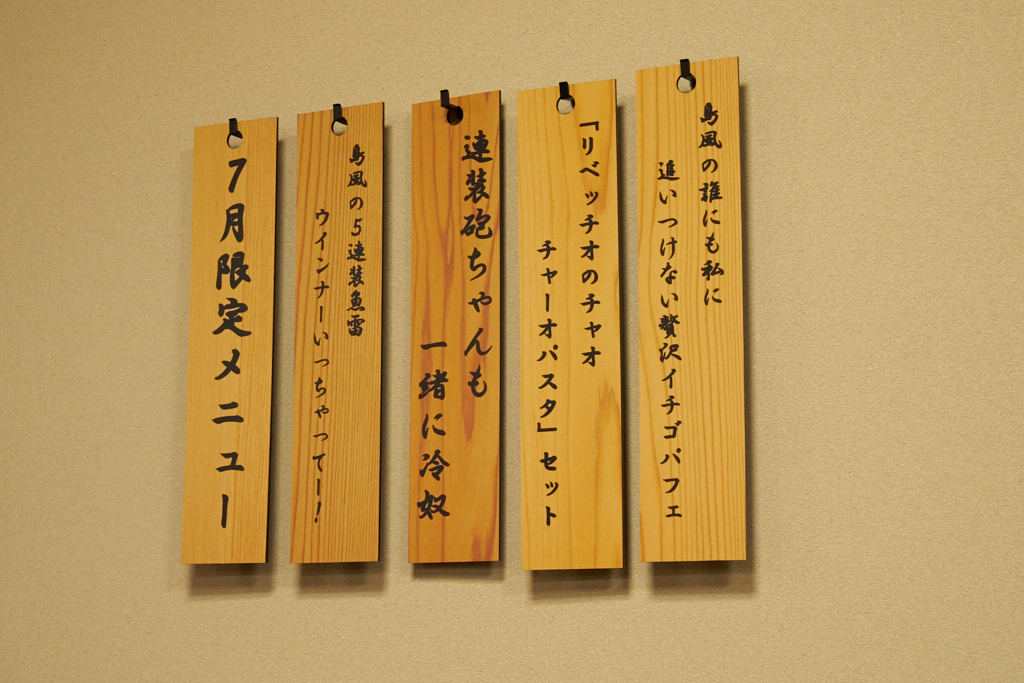 7月限定メニュー
島風の5連装魚雷
ウインナーいっちゃってー!
連装砲ちゃんも
一緒に冷奴
『リベッチオのチャオ
チャーオパスタ』セット
島風の誰にも私に
追いつけない贅沢イチゴパフェ